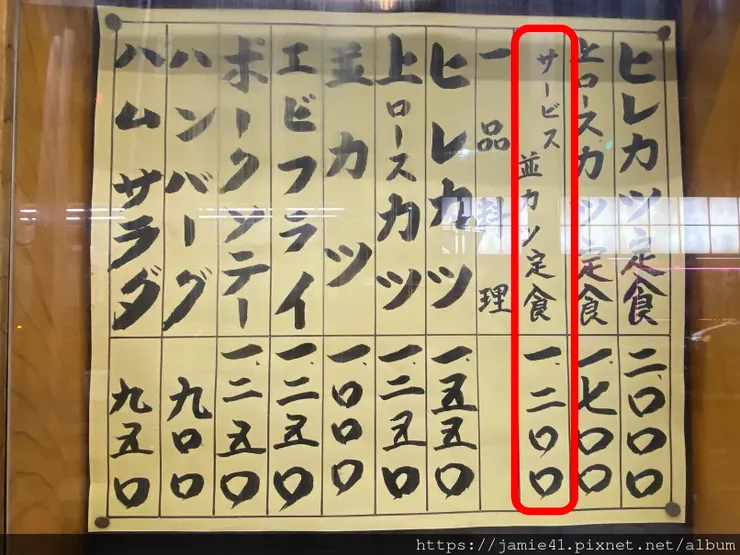 ヒレカツ定食 二、〇〇〇
上ロースカツ定食 一、七〇〇
サービス 並カツ定食 一、二〇〇
一品料理
ヒレカツ 一、五五〇
上ロースカツ 一、二五〇
並カツ 一、〇〇〇
エビフライ 一、二五〇
ポークソテー 一、二五〇
ハンバーグ 九〇〇
ハムサラダ 九五〇
https://jamie41.pixnet.net/album